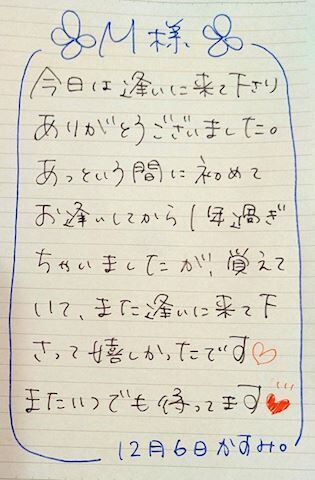 M様
今日は逢いに来て下さり
ありがとうございました。
あっという間に初めて
お逢いしてから1年過ぎ
ちゃいましたが、覚えて
いて、また逢いに来て下
さって嬉しかったです♡
またいつでも待ってます♥
12月6日かすみ。